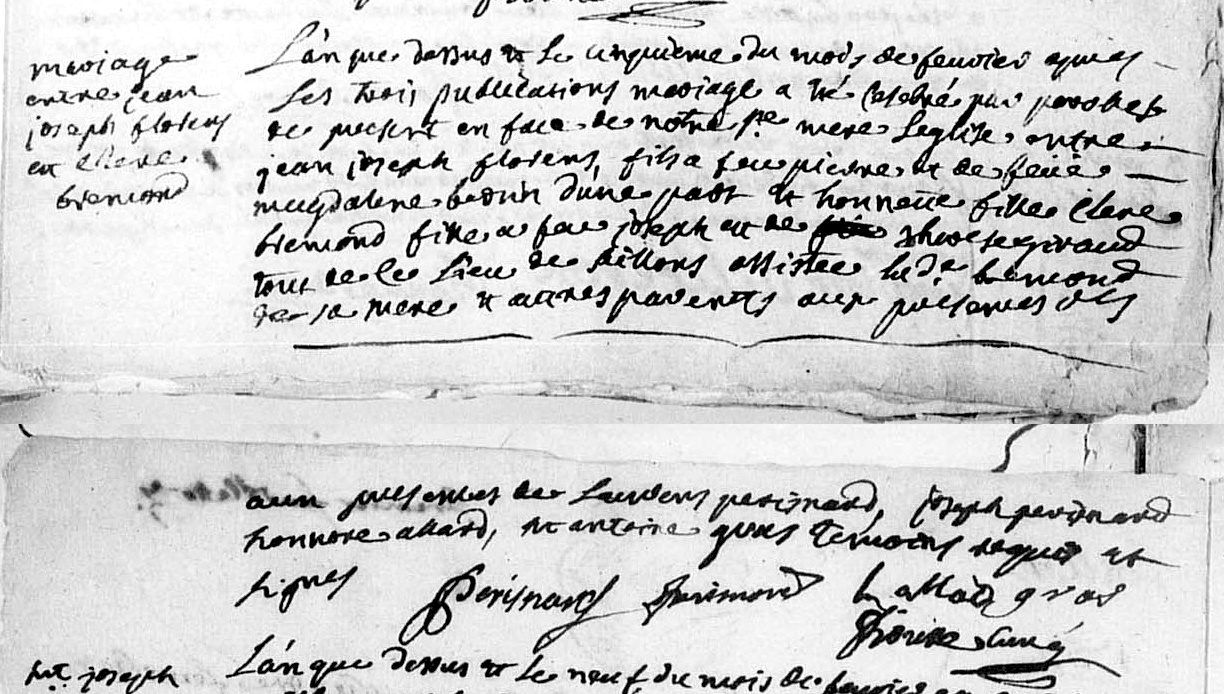 mariage
entre jean
joseph florens
et Clere
bremond
L'an que dessus et le cinquieme du mois de fevrier apres
les trois publications mariage a été celebré par paroles
de present en face de notre s.te mere leglise entre
jean joseph florens, fils a feu pierre et de feüe
magdalene bedin d'une part et honnette fille Clere
bremond fille a feu joseph et de therese giraud
tous de ce lieu de Sillons assistée lad.e bremond
de sa mere et autres parents aux presences des
aux presences de Laurens perignard, joseph perignard
honnore allard, et antoine gras temoins requis et
signes
Perignard h allard gras
curé
L'an que dessus et le neuf du mois de fevrier
joseph